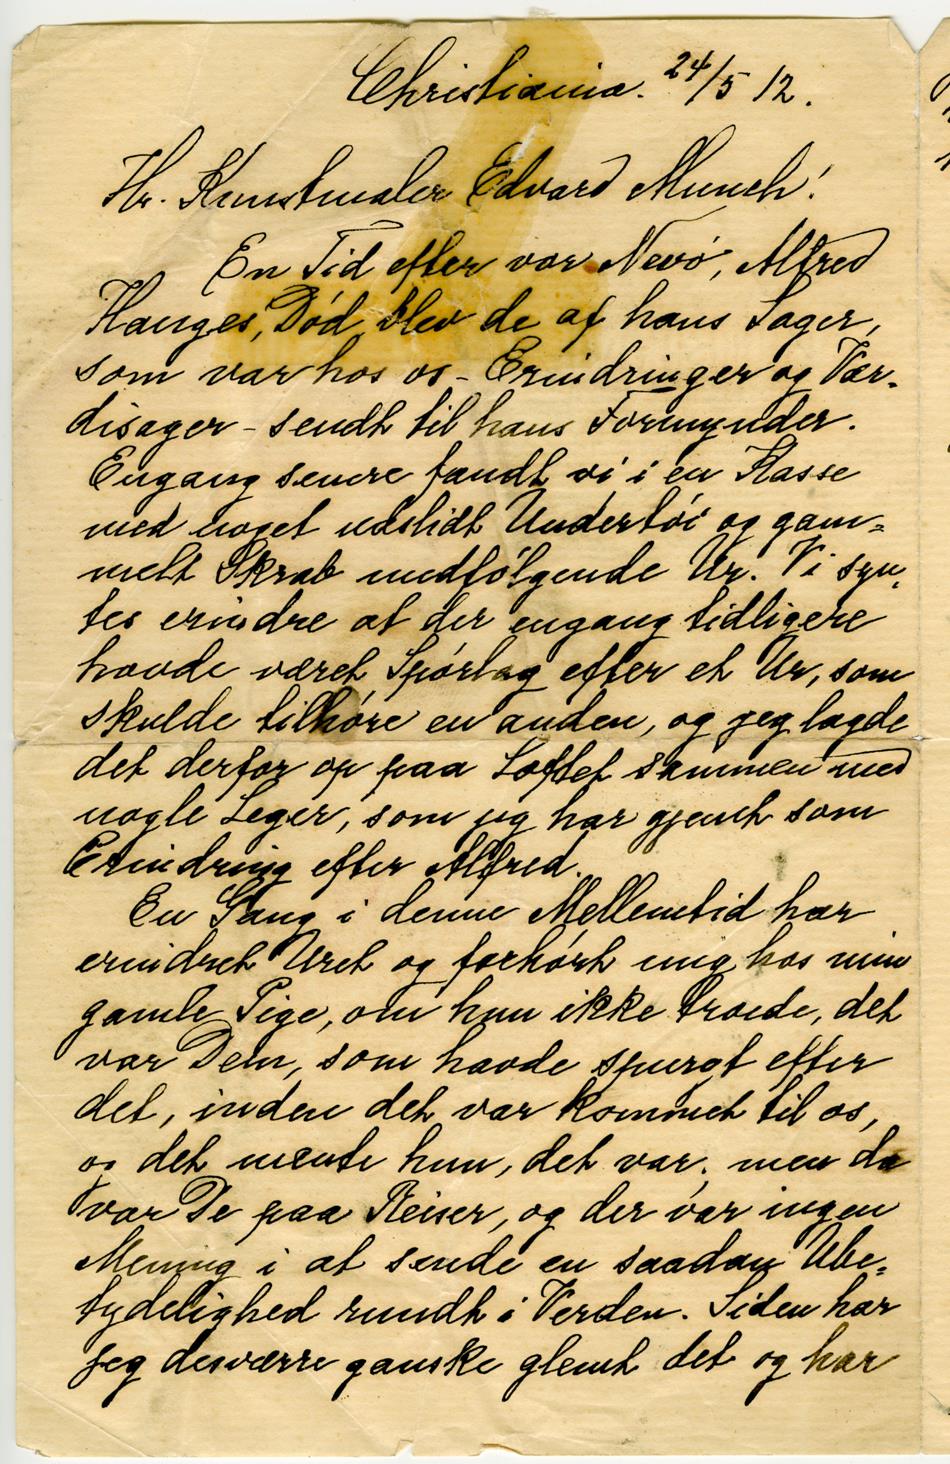 Christiania. 24/5 12.
Hr. Kunstmaler Edvard Munch!
En Tid efter vor Nevø, Alfred
Hauges, Død, blev de af hans Sager,
som var hos os – Erindringer og Vær-
disager – sendt til hans Formynder.
Engang senere fandt vi i en Kasse
med noget udslidt Undertøi og gam=
melt Skrab medfølgende Ur. Vi syn-
tes erindre at der engang tidligere
havde været Spørsmaal efter et Ur, som
skulde tilhøre en anden, og jeg lagde
det derfor op paa Loftet sammen med
nogle Leger, som jeg har gjemt som
Erindring efter Alfred.
En Gang i denne Mellemtid har
erindret Uret og forhørt mig hos min
gamle Pige, om hun ikke troede, det
var Dem, som havde spurgt efter
det, inden det var kommet til os,
og det mente hun, det var, men da
var De paa Reiser, og der var ingen
Mening i at sende en saadan Ube=
tydelighed rundt i Verden. Siden har
jeg desværre ganske glemt det og har